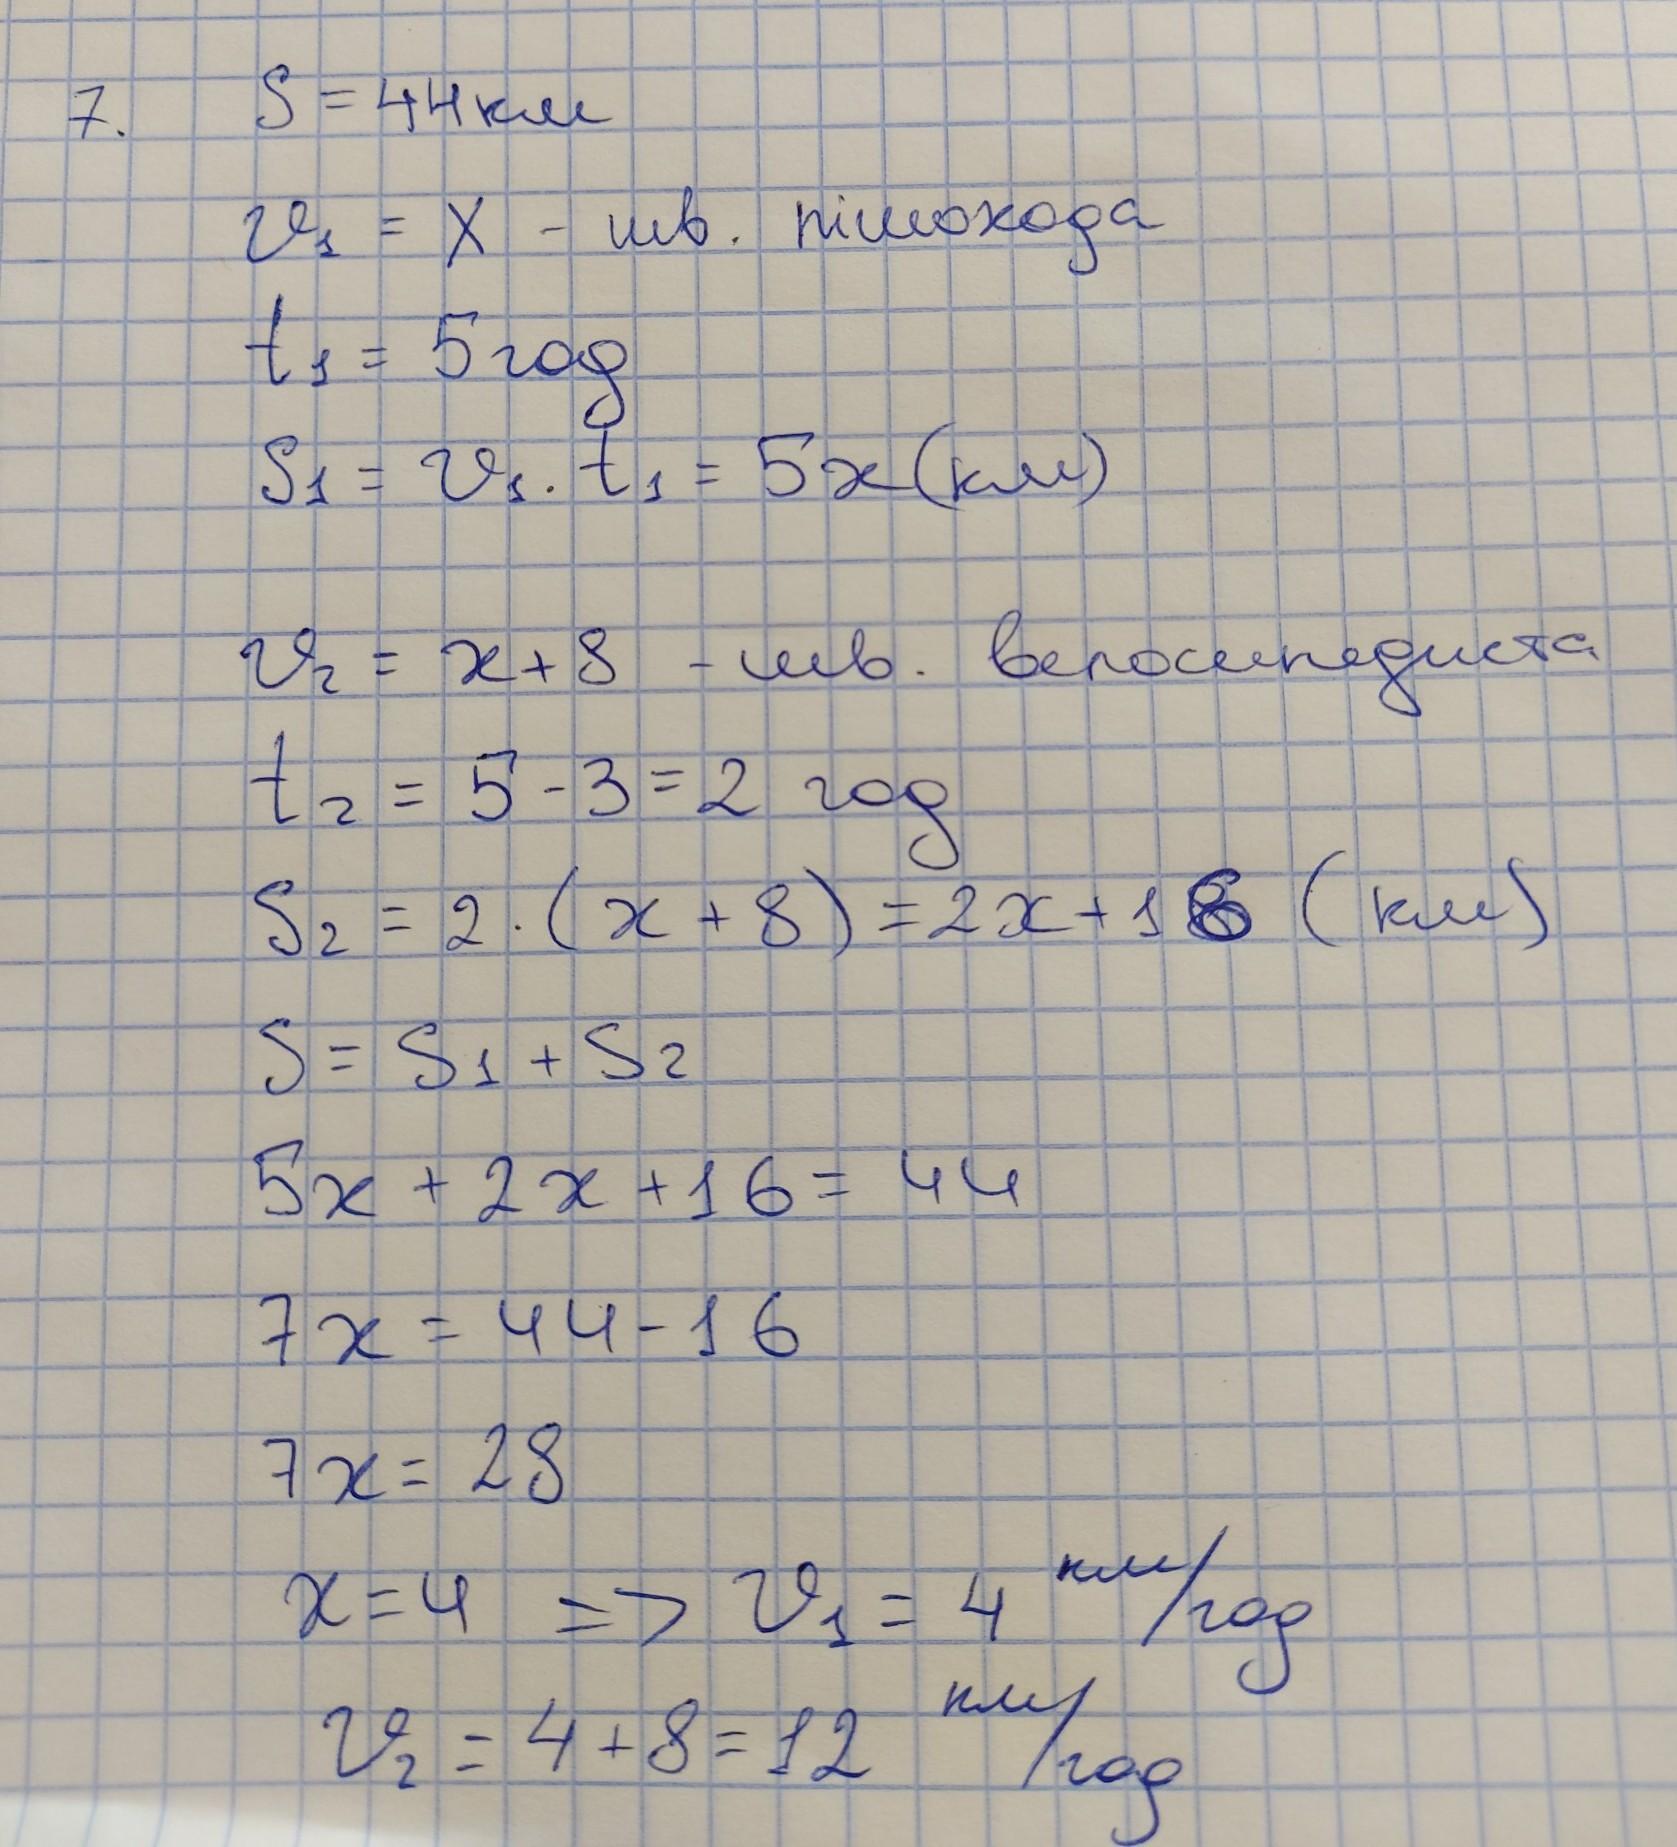 7. S = 44 км
v₁ = x - шв. пішохода
t₁ = 5 год
S₁ = v₁ · t₁ = 5x (км)
v₂ = x + 8 - шв. велосипедиста
t₂ = 5 - 3 = 2 год
S₂ = 2 · (x + 8) = 2x + 16 (км)
S = S₁ + S₂
5x + 2x + 16 = 44
7x = 44 - 16
7x = 28
x = 4 => v₁ = 4 км/год
v₂ = 4 + 8 = 12 км/год